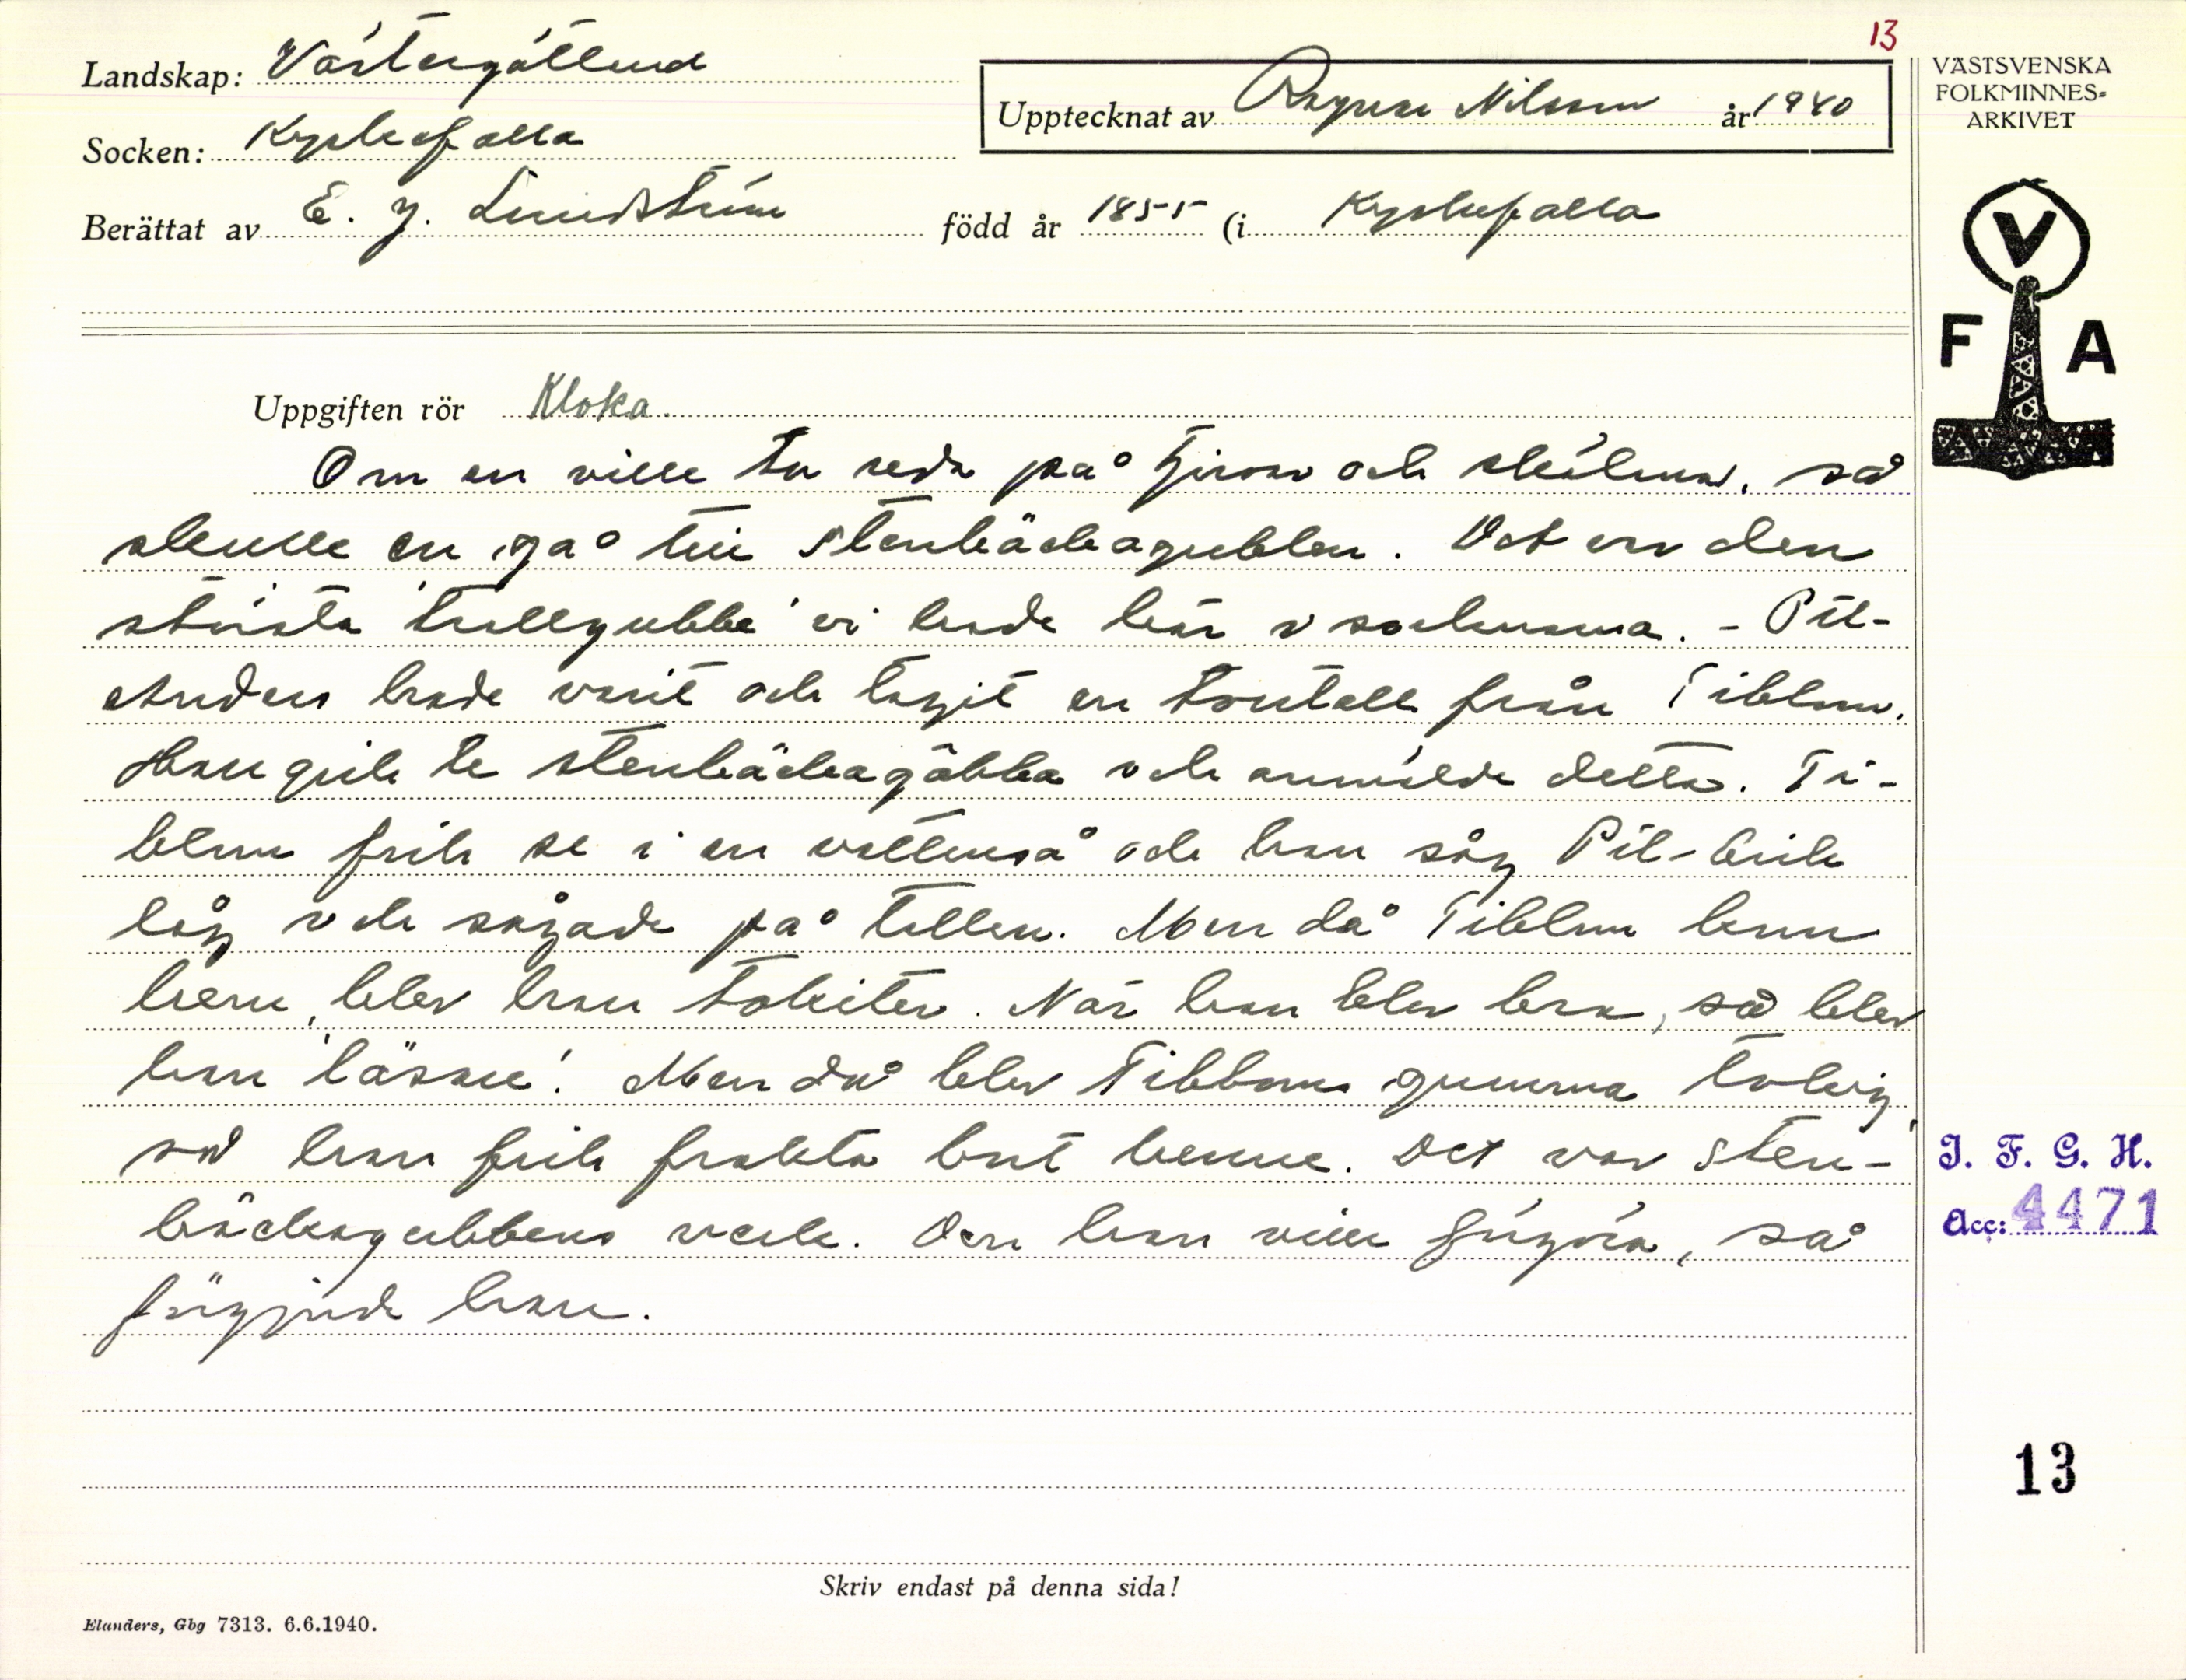 13
Landskap: Västergötland
Socken: Kyrkefalla
Berättat av E. J. Lundström född år 1855 (i Kyrkefalla
Upptecknat av Ragnar Nilsson år 1940
VÄSTSVENSKA
FOLKMINNES-
ARKIVET
V
F A
Uppgiften rör Kloka.
Om en ville ta reda på tjuvar och skälmar, så
skulle en gå till Stenbäckagubben. Det var den
största 'trollgubbe' vi hade här i socknarna. - Pil-
Anders hade varit och tagit en torrtall från Tibbom.
Han gick te stenbäckagåbba och anmälde detta. Ti-
bbom fick se i en vattenså och han såg Pil-
låg och sågade på tallen. Men då Tibbom kom
hem, blev han tokiter. När han blev bra, så blev
han 'läsare'. Men då blev Tibboms gumma tokig,
så han fick frakta bort henne. Det var Sten-
bäckagubbens verk. Den han ville förgöra, så
förgjorde han.
I. F. G. H.
Acc: 4471
13
Skriv endast på denna sida!
Elanders, Gbg 7313. 6.6.1940.